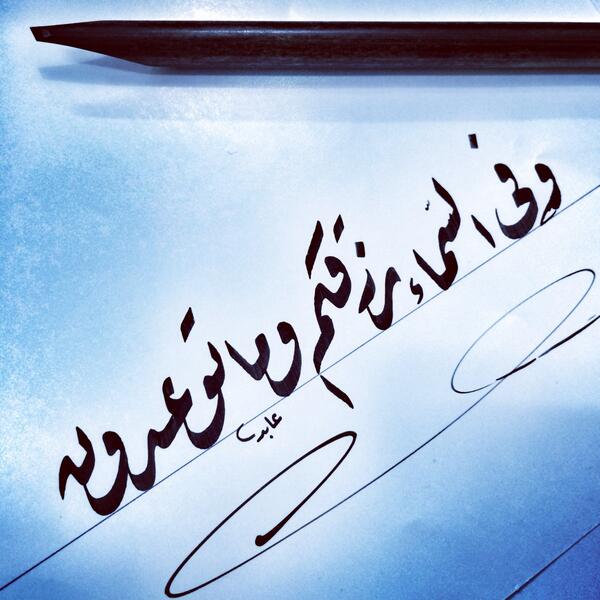 وفي السّماء رزقكم وما توعدون
عابد